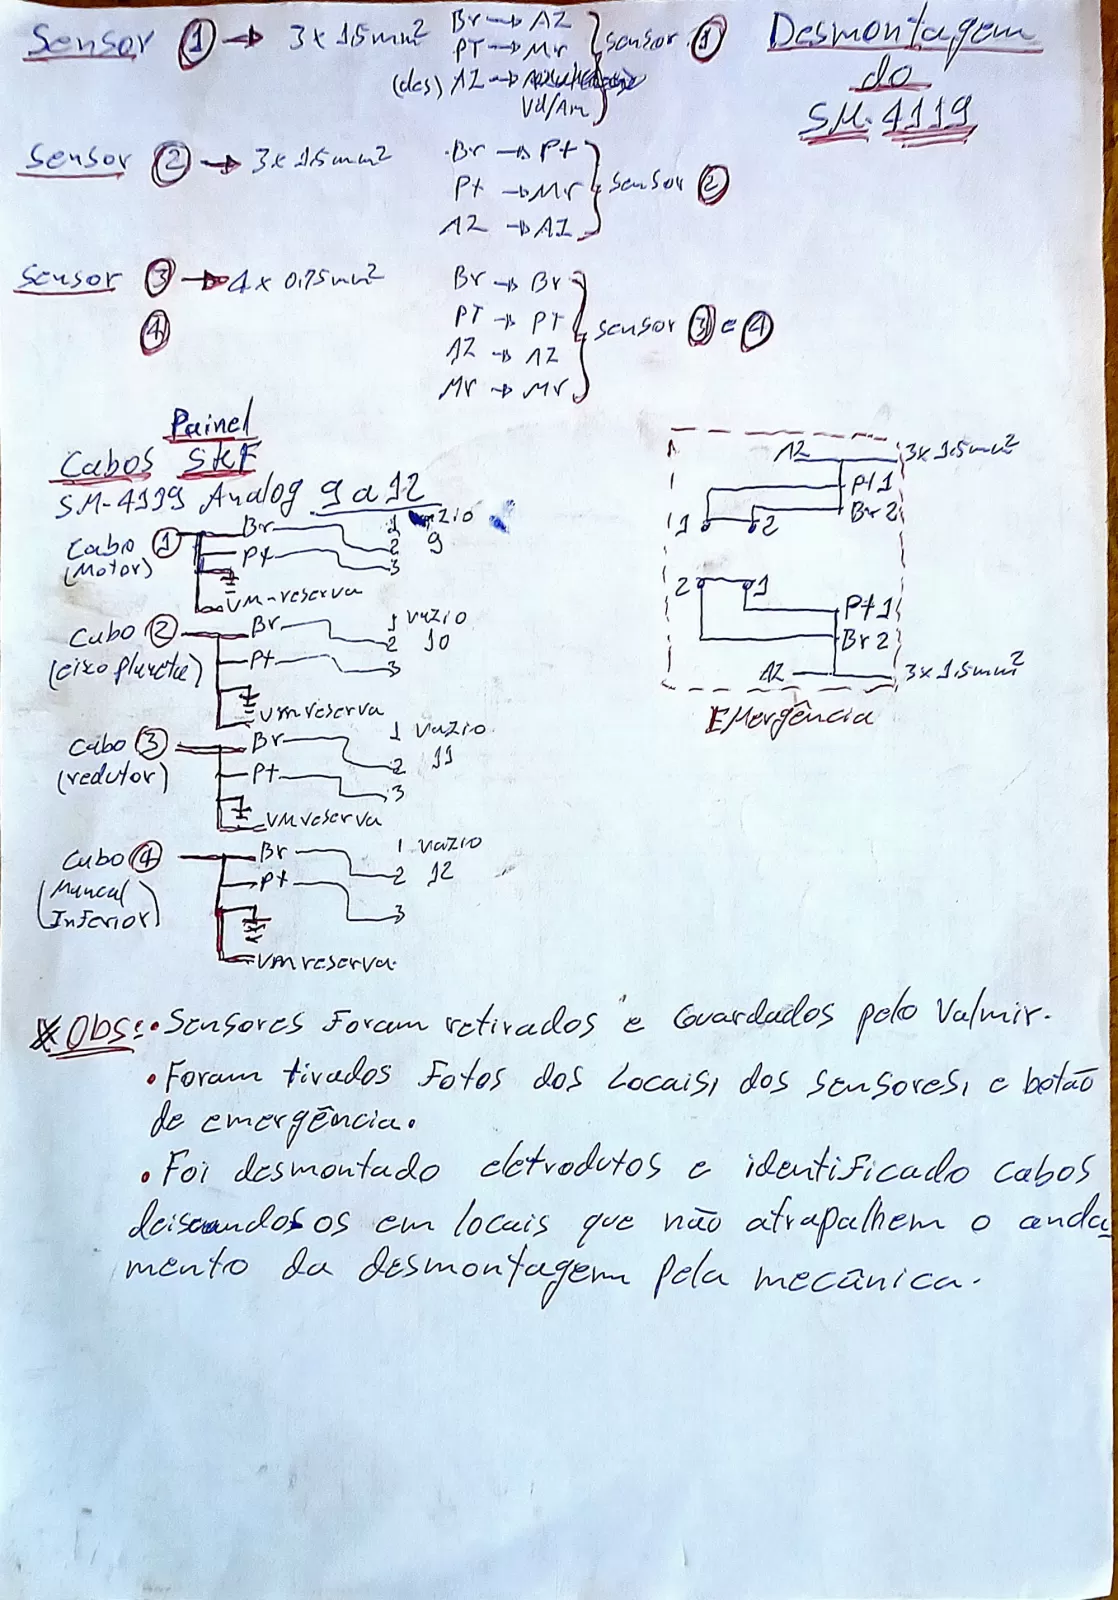 Desmontagem
do
SM-4119
Sensor 1 → 3x1,5mm²
Br → AZ
PT → Mr
(des) AZ →
Vd/Am
sensor 1
Sensor 2 → 3x1,5mm²
Br → Pt
Pt → Mr
AZ → AZ
sensor 2
Sensor 3 → 4x0,75mm²
4
Br → Br
PT → PT
AZ → AZ
Mr → Mr
sensor 3 e 4
Painel
Cabos SKF
SM-4119 Analog 9 a 12
Cabo 1
(Motor)
Br
Pt
VM-reserva
1
2
3
9
Cabo 2
(eixo planeta)
Br
Pt
VM reserva
1 vazio
2 10
3
Cabo 3
(redutor)
Br
Pt
VM reserva
1 vazio
2 11
3
Cabo 4
(Mancal
Inferior)
Br
Pt
VM reserva.
1 vazio
2 12
3
AZ 3x1,5mm²
Pt 1
Br 2
1 2
2 1
Pt 1
Br 2
AZ 3x1,5mm²
EMergência
* Obs: • Sensores Foram retirados e Guardados pelo Valmir.
• Foram tirados Fotos dos Locais, dos sensores, e botão
de emergência.
• Foi desmontado eletrodutos e identificado cabos
os em locais que não atrapalhem o anda
mento da desmontagem pela mecânica.